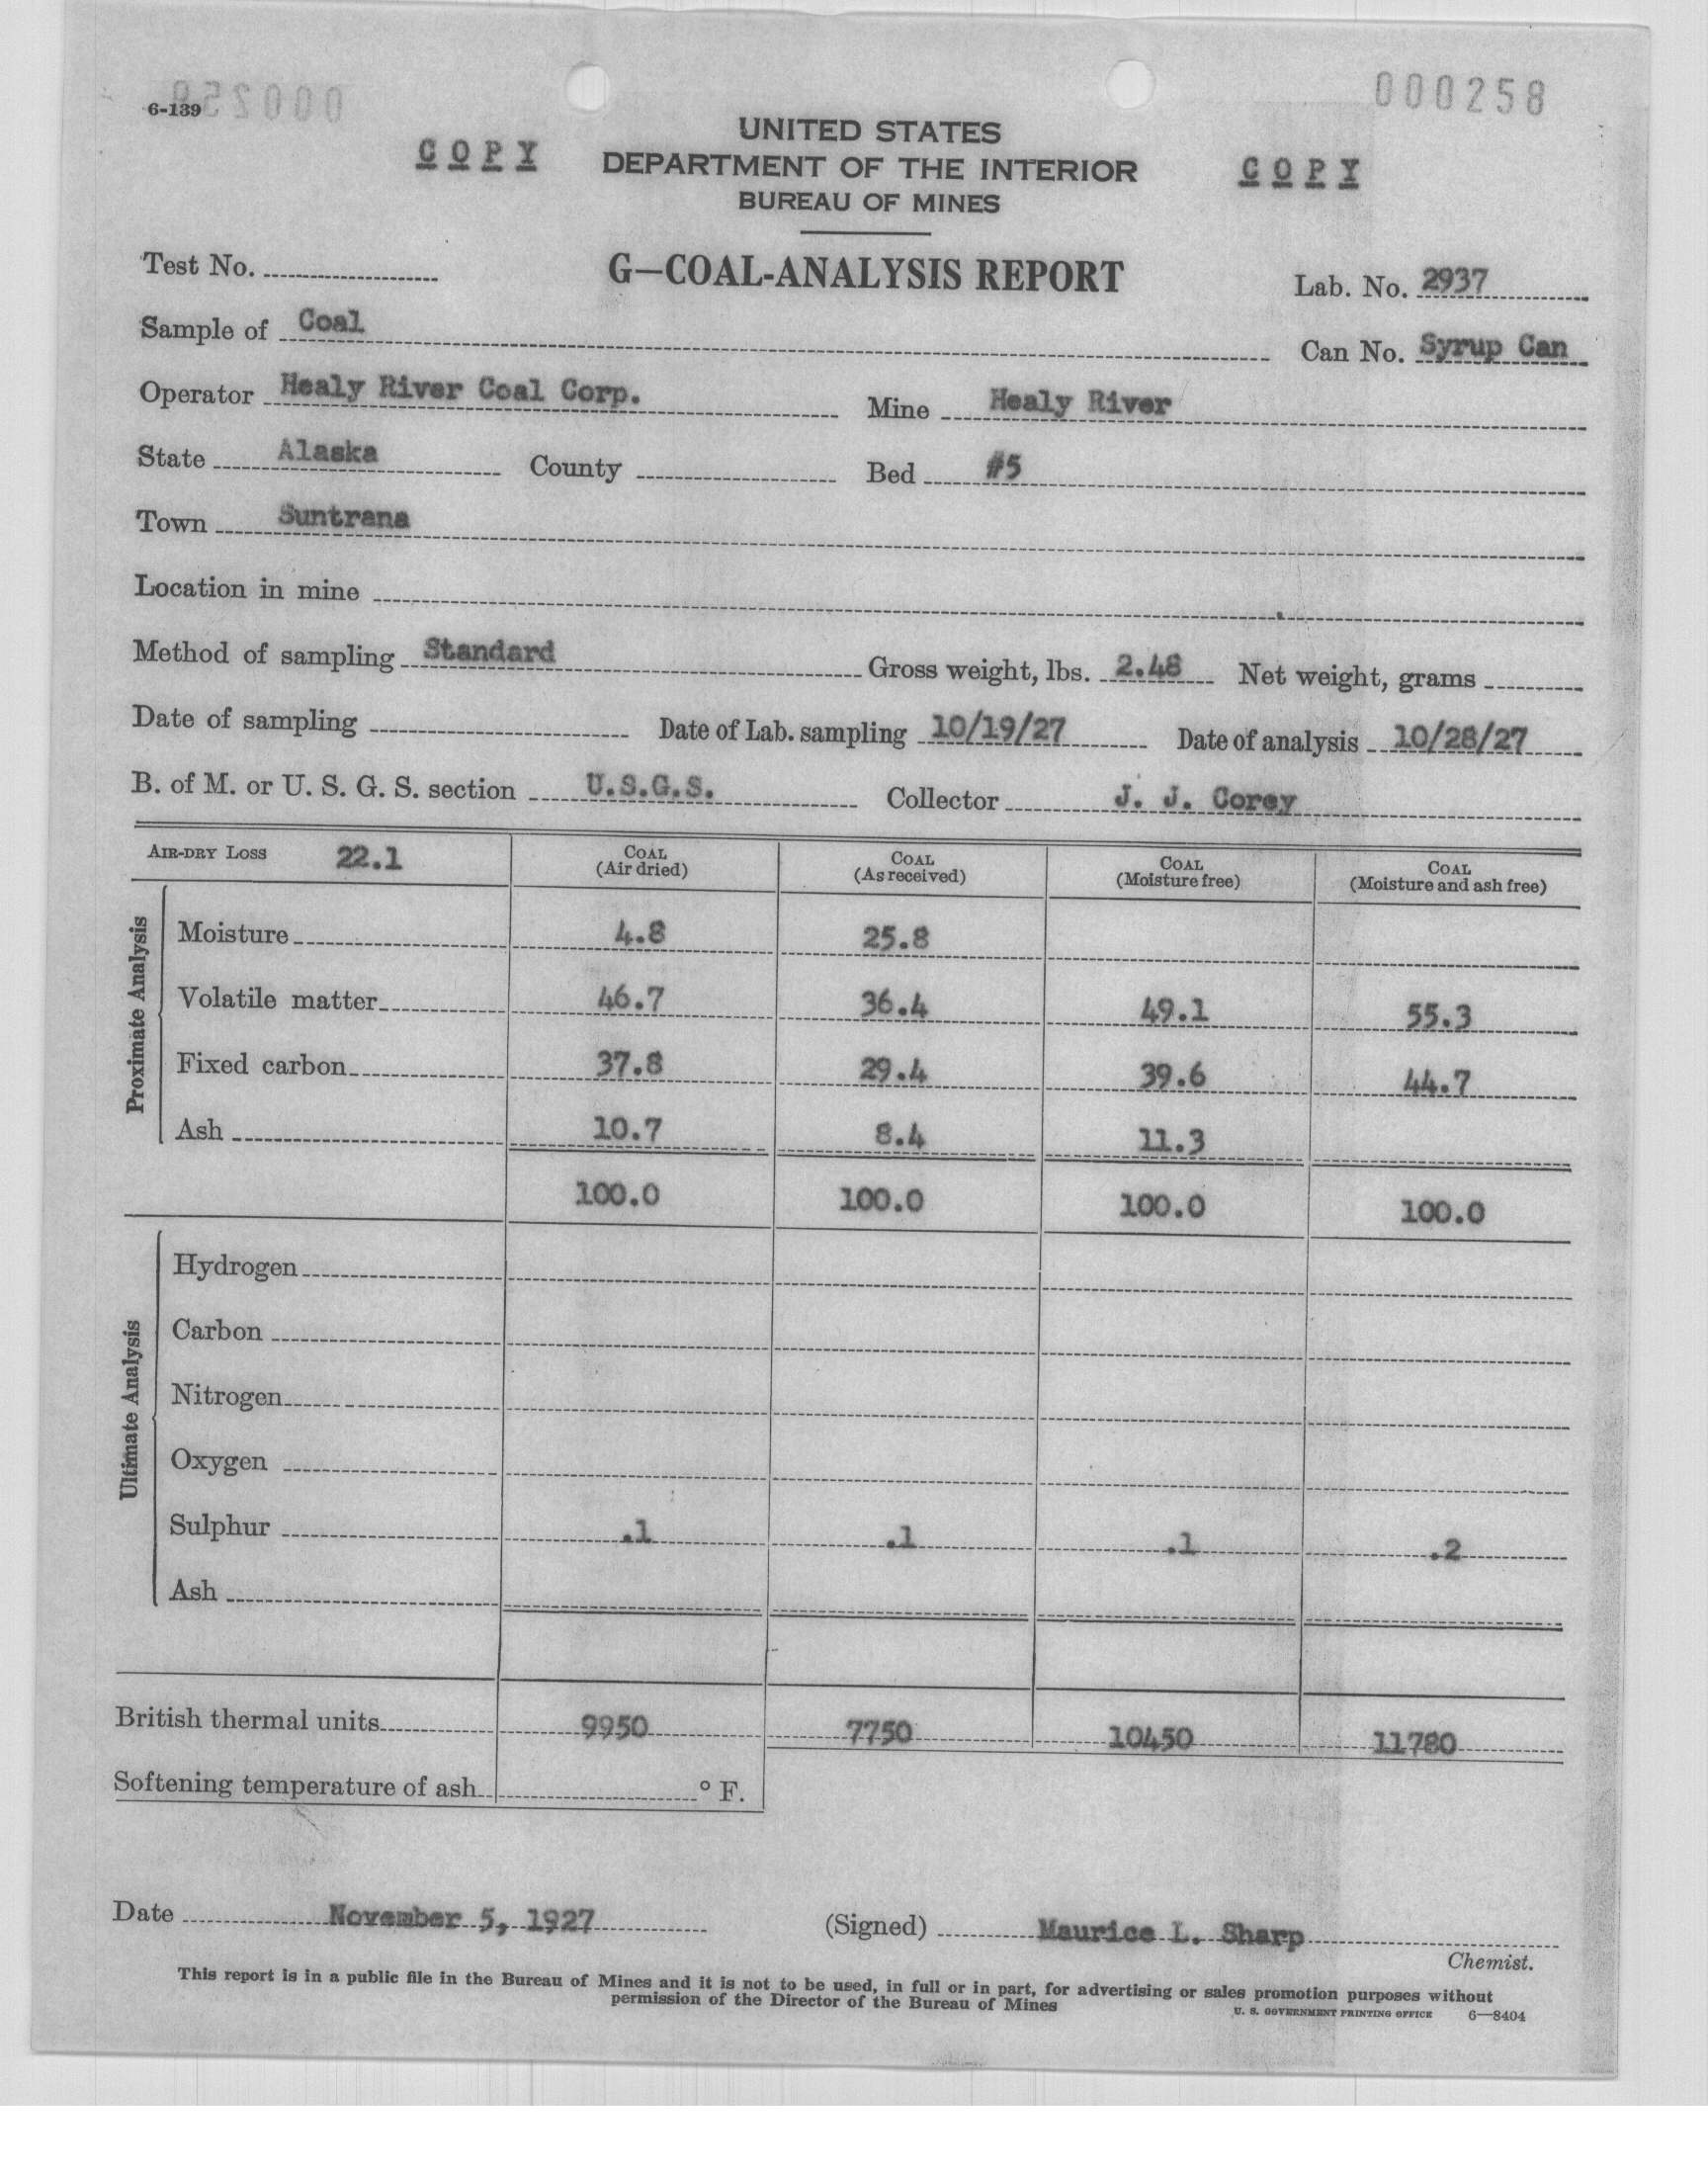 6-139
000258
000258
COPY
UNITED STATES
DEPARTMENT OF THE INTERIOR
BUREAU OF MINES
COPY
Test No.
G—COAL-ANALYSIS REPORT
Lab. No. 2937
Sample of Coal
Can No. Syrup Can
Operator Healy River Coal Corp. Mine Healy River
State Alaska County Bed #5
Town Suntrana
Location in mine
Method of sampling Standard Gross weight, lbs. 2.48 Net weight, grams
Date of sampling Date of Lab. sampling 10/19/27 Date of analysis 10/28/27
B. of M. or U. S. G. S. section U.S.G.S. Collector J. J. Corey
AIR-DRY LOSS 22.1 COAL (Air dried) COAL (As received) COAL (Moisture free) COAL (Moisture and ash free)
Proximate Analysis
Moisture 4.8 25.8
Volatile matter 46.7 36.4 49.1 55.3
Fixed carbon 37.8 29.4 39.6 44.7
Ash 10.7 8.4 11.3
100.0 100.0 100.0 100.0
Ultimate Analysis
Hydrogen
Carbon
Nitrogen
Oxygen
Sulphur .1 .1 .1 .2
Ash
British thermal units 9950 7750 10450 11780
Softening temperature of ash ° F.
Date November 5, 1927 (Signed) Maurice L. Sharp
Chemist.
This report is in a public file in the Bureau of Mines and it is not to be used, in full or in part, for advertising or sales promotion purposes without
permission of the Director of the Bureau of Mines
U. S. GOVERNMENT PRINTING OFFICE 6—8404